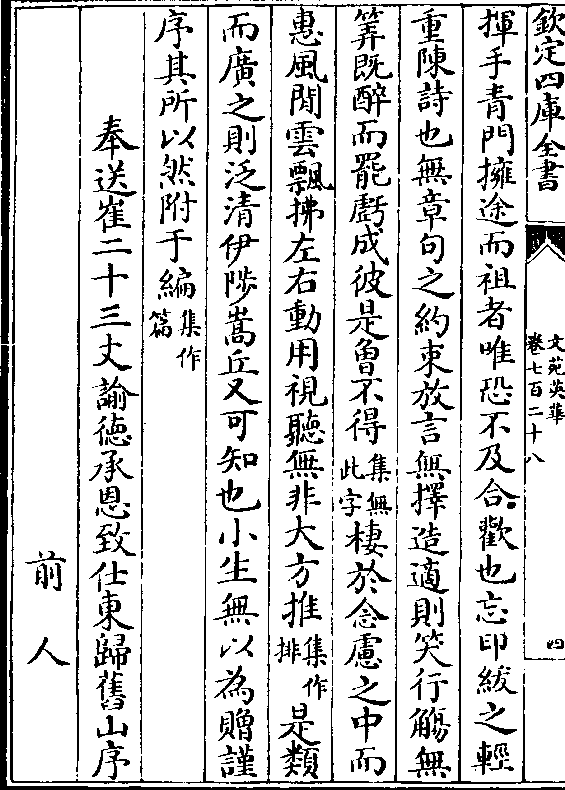 欽定四庫全書
文苑英華
卷七百二十八
四
揮手青門擁途而祖者唯恐不及合歡也忘印紱之輕
重陳詩也無章句之約束放言無擇造適則笑行觴無
筭既醉而罷虧成彼是曾不得集無此字棲於念慮之中而
惠風閒雲飄拂左右動用視聽無非大方推集作排是類
而廣之則泛清伊陟嵩丘又可知也小生無以為贈謹
序其所以然附于編集作篇
奉送崔二十三丈諭德承恩致仕東歸舊山序
前人